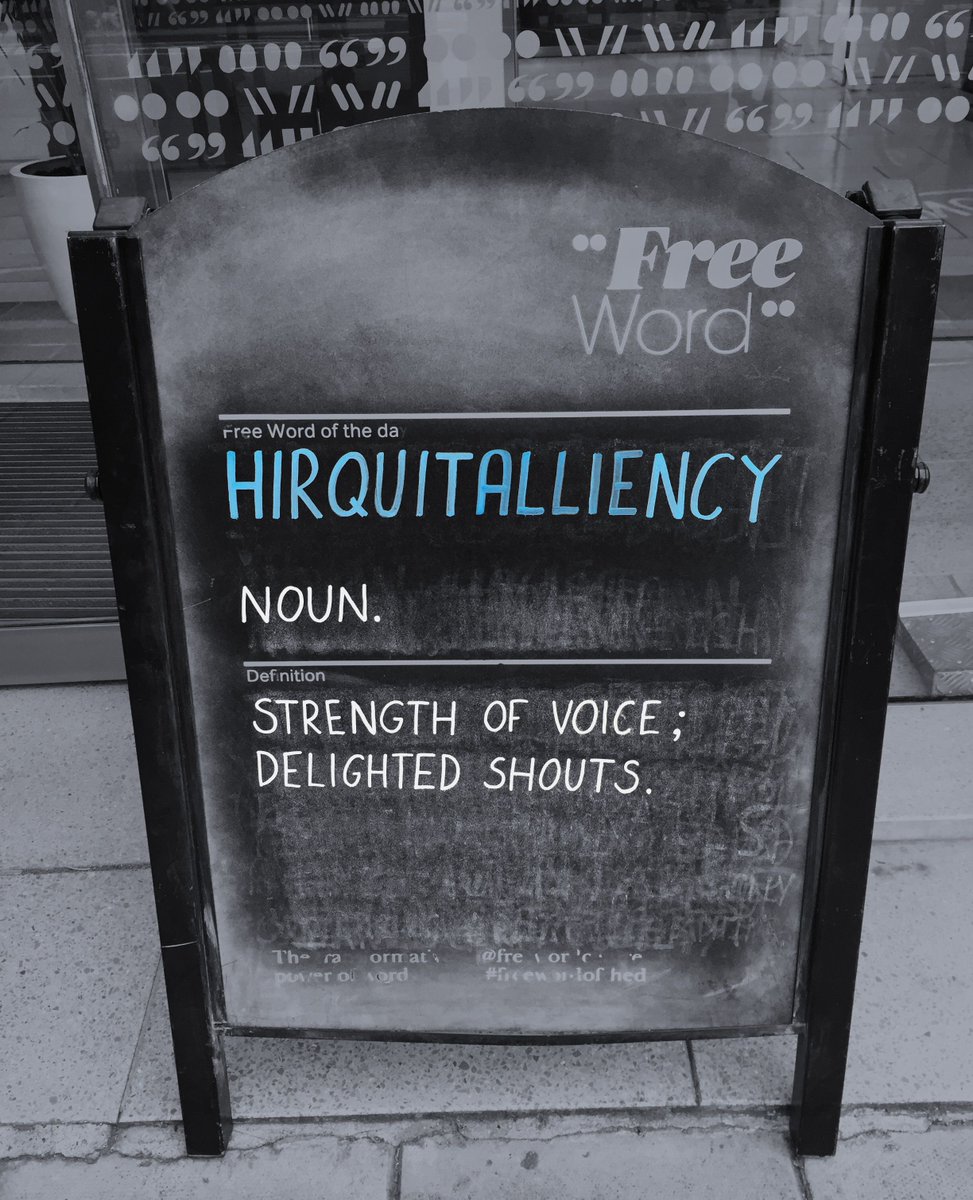 "Free
Word"
Free Word of the da
HIRQUITALLIENCY
NOUN.
Definition
STRENGTH OF VOICE;
DELIGHTED SHOUTS.
power of word